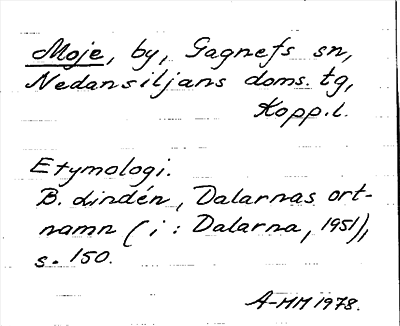 Moje, by, Gagnefs sn,
Nedansiljans doms. tg,
Kopp.l.
Etymologi.
B. Lindén, Dalarnas ort-
namn (i: Dalarna, 1951),
s. 150.
A-MM 1978.